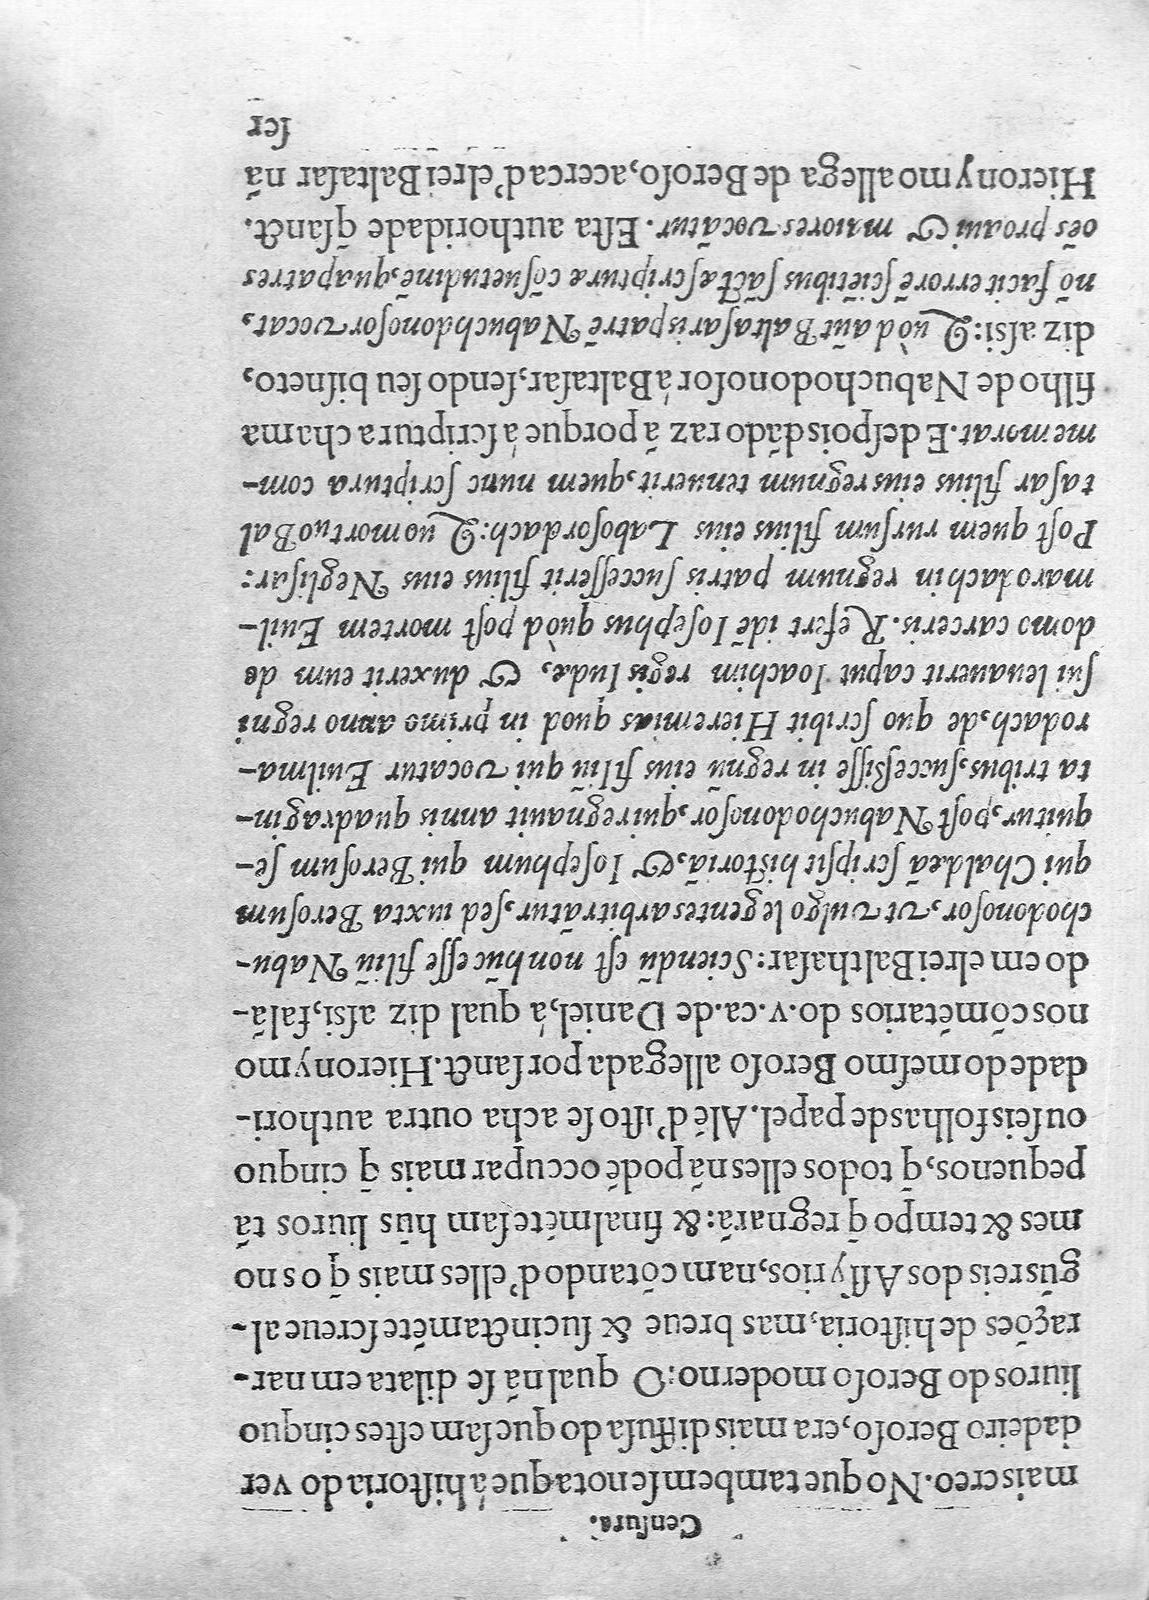 Cenſura.
mais creo. No que tambem ſe nota que á hiſtoria do ver
dadeiro Beroſo, era mais diffuſa do que ſam eſtes cinquo
liuros do Beroſo moderno: O qual nã ſe dilata em nar-
rações de hiſtoria, mas breue & ſucinctaméte ſcreue al-
gũs reis dos Aſſyrios, nam cõtando d'elles mais q̃ os no
mes & tempo q̃ regnarã: & finalméte ſam hũs liuros tã
pequenos, q̃ todos elles nã podé occupar mais q̃ cinquo
ou ſeis folhas de papel. Alé d'iſto ſe acha outra authori-
dade do meſmo Beroſo allegada por ſanct. Hieronymo
nos cométarios do .v. ca. de Daniel, á qual diz aſsi, falã-
do em elrei Balthaſar: Sciendũ eſt non hũc eſſe filiũ Nabu-
chodonoſor, vt vulgo legentes arbitrãtur, ſed iuxta Beroſum
qui Chaldæã ſcripſit hiſtoriã, & Ioſephum qui Beroſum ſe-
quitur, poſt Nabuchodonoſor, qui regnauit annis quadragin-
ta tribus, ſucceſsiſſe in regnũ eius filiũ qui vocatur Euilma-
rodach, de quo ſcribit Hieremias quod in primo anno regni
ſui leuauerit caput Ioachim regis Iudæ, & duxerit eum de
domo carceris. Refert idē Ioſephus quòd poſt mortem Euil-
marodach in regnum patris ſucceſſerit filius eius Negliſar:
Poſt quem rurſum filius eius Laboſordach: Quo mortuo Bal
taſar filius eius regnum tenuerit, quem nunc ſcriptura com-
memorat. E deſpois dãdo razã porque á ſcriptura chama
filho de Nabuchodonoſor á Baltaſar, ſendo ſeu biſneto,
diz aſsi: Quòd aũt Baltaſaris patrē Nabuchdonoſor vocat,
nō facit errorē ſciētibus ſāctæ ſcripturæ cōſuetudinē, qua patres
oēs proaui & maiores vocãtur. Eſta authoridade q̃ ſanct.
Hieronymo allega de Beroſo, acerca d'elrei Baltaſar nã
ſer